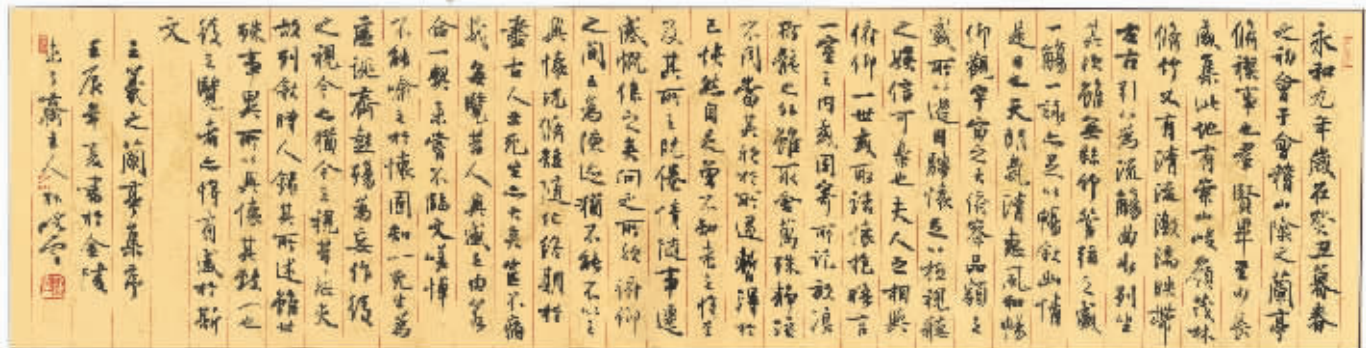 永和九年歲在癸丑暮春
之初會于會稽山陰之蘭亭
脩禊事也羣賢畢至少長
咸集此地有崇山峻嶺茂林
脩竹又有清流激湍映帶
左右引以為流觴曲水列坐
其次雖無絲竹管弦之盛
一觴一詠亦足以暢敘幽情
是日也天朗氣清惠風和暢
仰觀宇宙之大俯察品類之
盛所以遊目騁懷足以極視聽
之娛信可樂也夫人之相與
俯仰一世或取諸懷抱晤言
一室之內或因寄所託放浪
形骸之外雖取舍萬殊靜躁
不同當其欣於所遇暫得於
己快然自足曾不知老之將至
及其所之既倦情隨事遷
感慨係之矣向之所欣俯仰
之間已為陳迹猶不能不以之
興懷況脩短隨化終期於
盡古人云死生亦大矣豈不痛
哉每覽昔人興感之由若
合一契未嘗不臨文嗟悼
不能喻之於懷固知一死生為
虛誕齊彭殤為妄作後
之視今亦猶今之視昔悲夫
故列敘時人錄其所述雖世
殊事異所以興懷其致一也
後之覽者亦將有感於斯
文
王羲之蘭亭集序
壬辰年夏書於金陵
齋主人